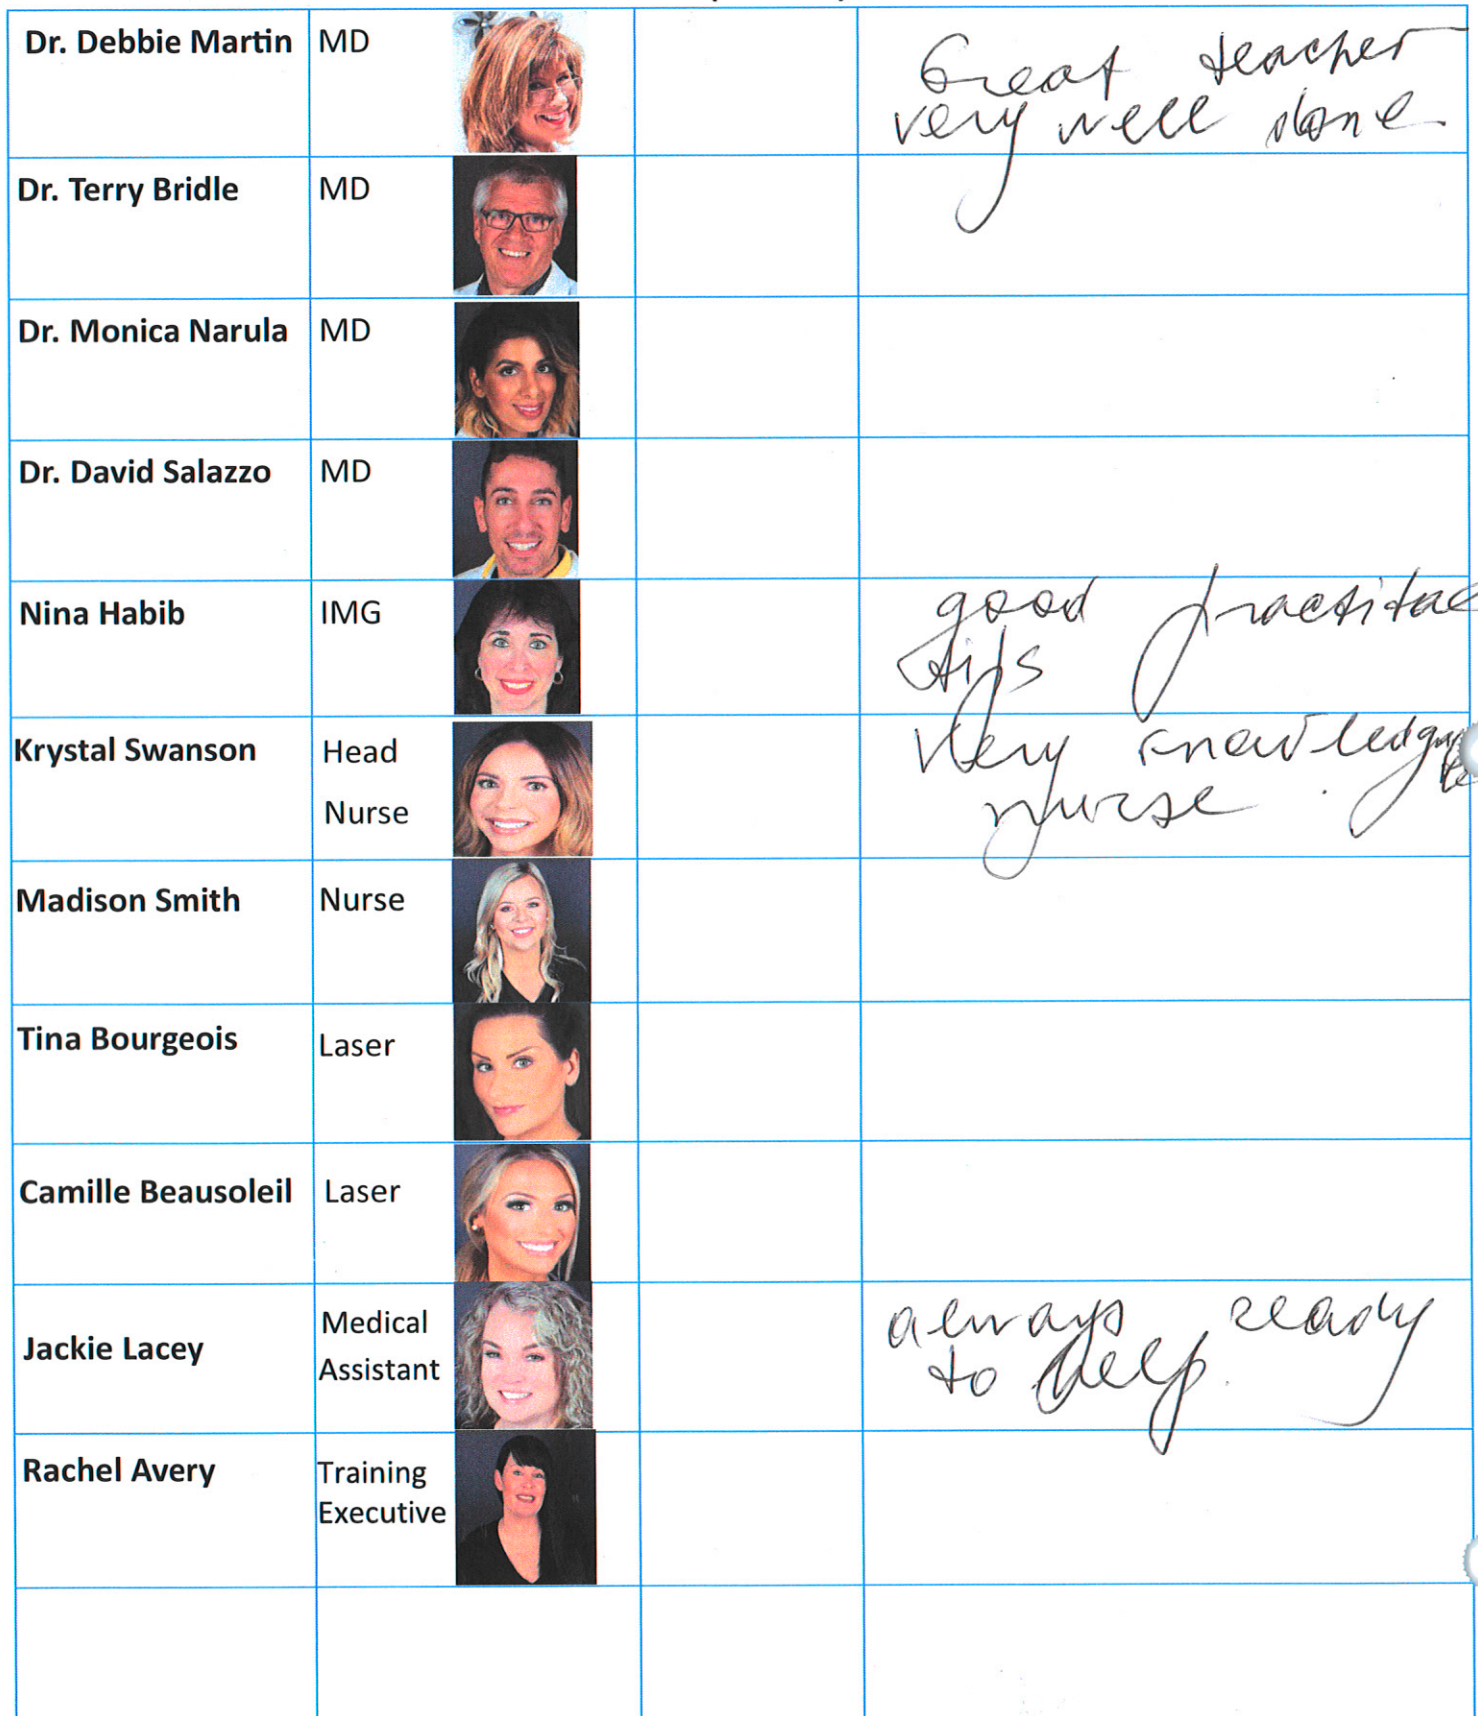 Dr. Debbie Martin MD
Great teacher
very well done
Dr. Terry Bridle MD
Dr. Monica Narula MD
Dr. David Salazzo MD
Nina Habib IMG
good
tips
Krystal Swanson Head
Nurse
very
nurse.
Madison Smith Nurse
Tina Bourgeois Laser
Camille Beausoleil Laser
Jackie Lacey Medical
Assistant
always ready
to help.
Rachel Avery Training
Executive